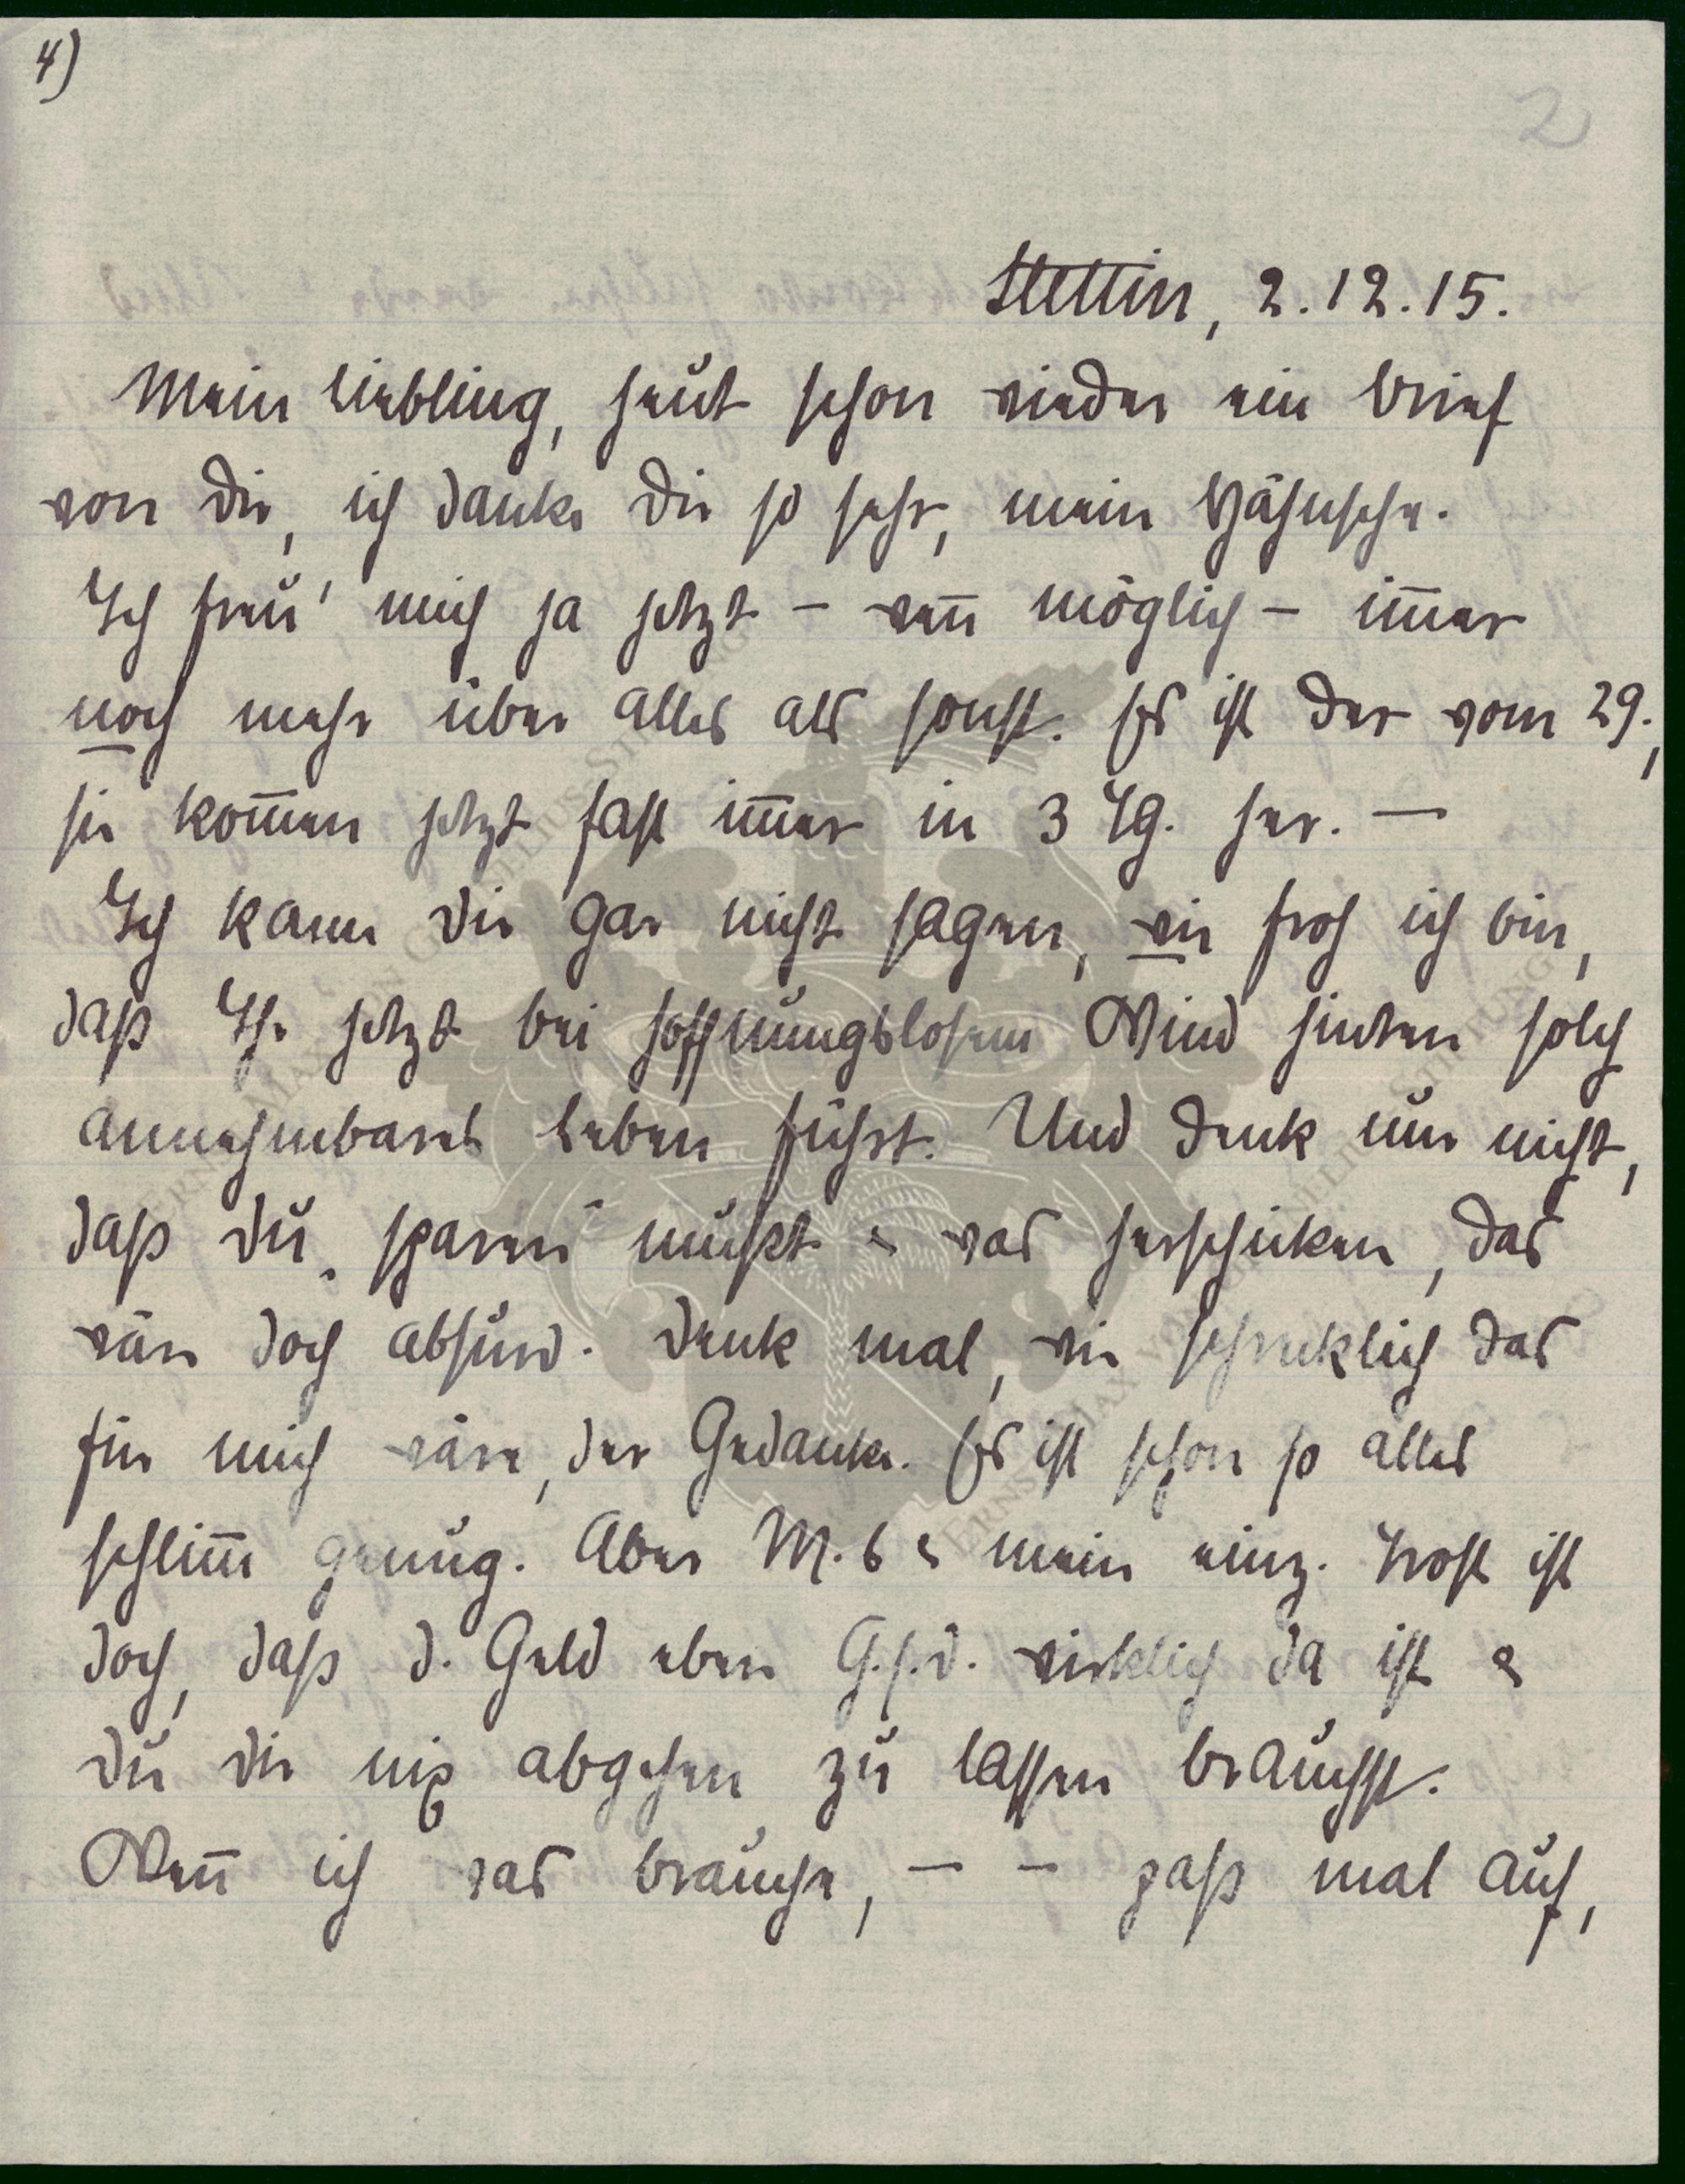 4)
2
Stettin, 2.12.15.
Mein Liebling, heut schon wieder ein Brief
von Dir, ich danke Dir so sehr, mein Hähnche.
Ich freu' mich ja jetzt – wen̄ möglich – im̄er
noch mehr über alles als sonst. Es ist der vom 29.,
sie kom̄en jetzt fast im̄er in 3 Tg. her. —
Ich kann Dir gar nicht sagen, wie froh ich bin,
daß Ihr jetzt bei hoffnungslosem Wind hinten solch
annehmbares Leben führt. Und denk nur nicht,
daß Du „sparen" mußt & was herschicken, das
wär doch absurd. Denk mal, wie schrecklich das
für mich wäre, der Gedanke. Es ist schon so alles
schlim̄ genug. Aber M. 6 & mein einz. Trost ist
doch, daß d. Geld eben G.s.d. wirklich da ist &
Du Dir nix abgehen zu lassen brauchst.
Wen̄ ich was brauche, – – paß mal auf,
ERNST MAX VON GRUNELIUS STIFTUNG